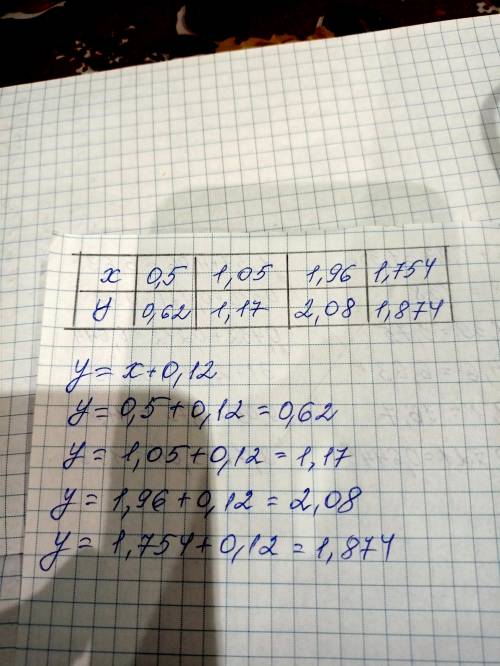 x 0,5 1,05 1,96 1,754
y 0,62 1,17 2,08 1,874
y = x+0,12
y = 0,5+0,12 = 0,62
y = 1,05+0,12 = 1,17
y = 1,96+0,12 = 2,08
y = 1,754+0,12 = 1,874